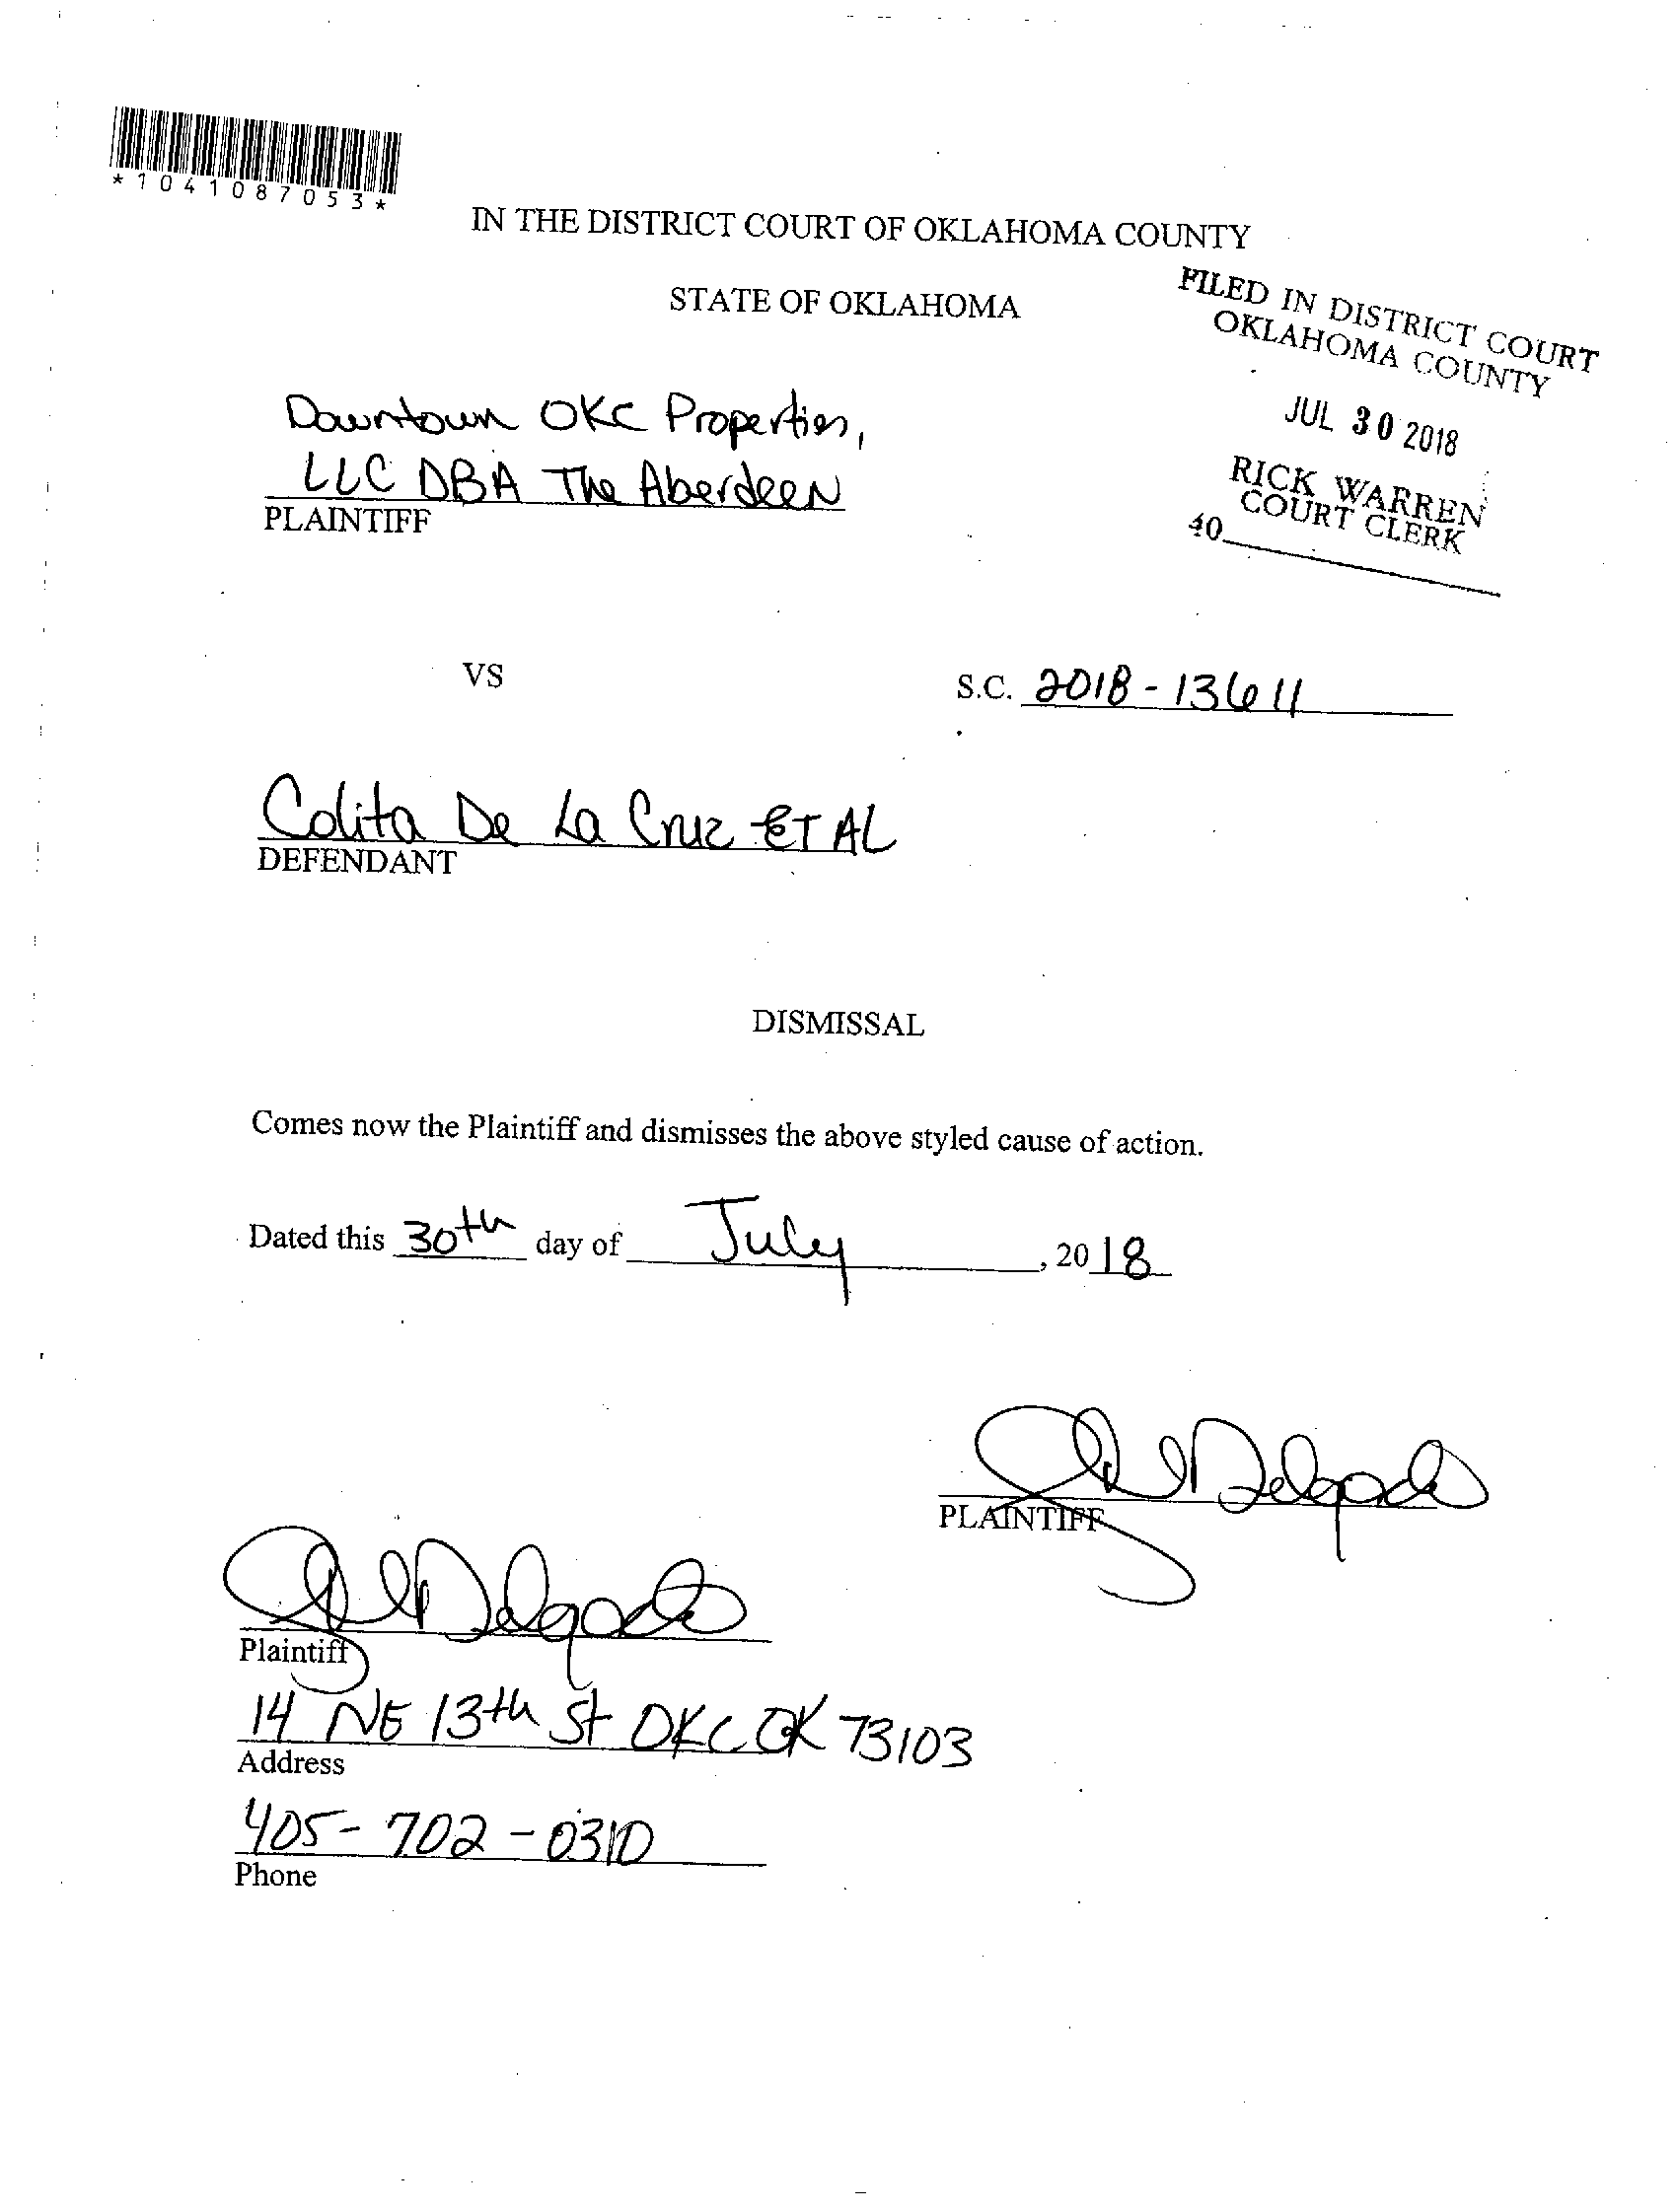 *1041087053*
IN THE DISTRICT COURT OF OKLAHOMA COUNTY
STATE OF OKLAHOMA
FILED IN DISTRICT COURT
OKLAHOMA COUNTY
JUL 30 2018
RICK WARREN
COURT CLERK
40
Downtown OKC Properties,
LLC DBA The Aberdeen
PLAINTIFF
VS
S.C. 2018-13611
Colita De La Cruz ET AL
DEFENDANT
DISMISSAL
Comes now the Plaintiff and dismisses the above styled cause of action.
Dated this 30th day of July, 2018
Delgado
PLAINTIFF
Delgado
Plaintiff
14 NE 13th St OKC OK 73103
Address
405-702-0310
Phone